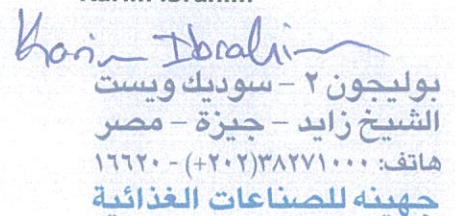 Karim Ibrahim
Karim Ibrahim
بوليجون ٢ - سوديك ويست
الشيخ زايد - جيزة - مصر
هاتف: ٣٨٢٧١٠٠٠(٢٠٢+) - ١٦٦٢٠
جهينه للصناعات الغذائية